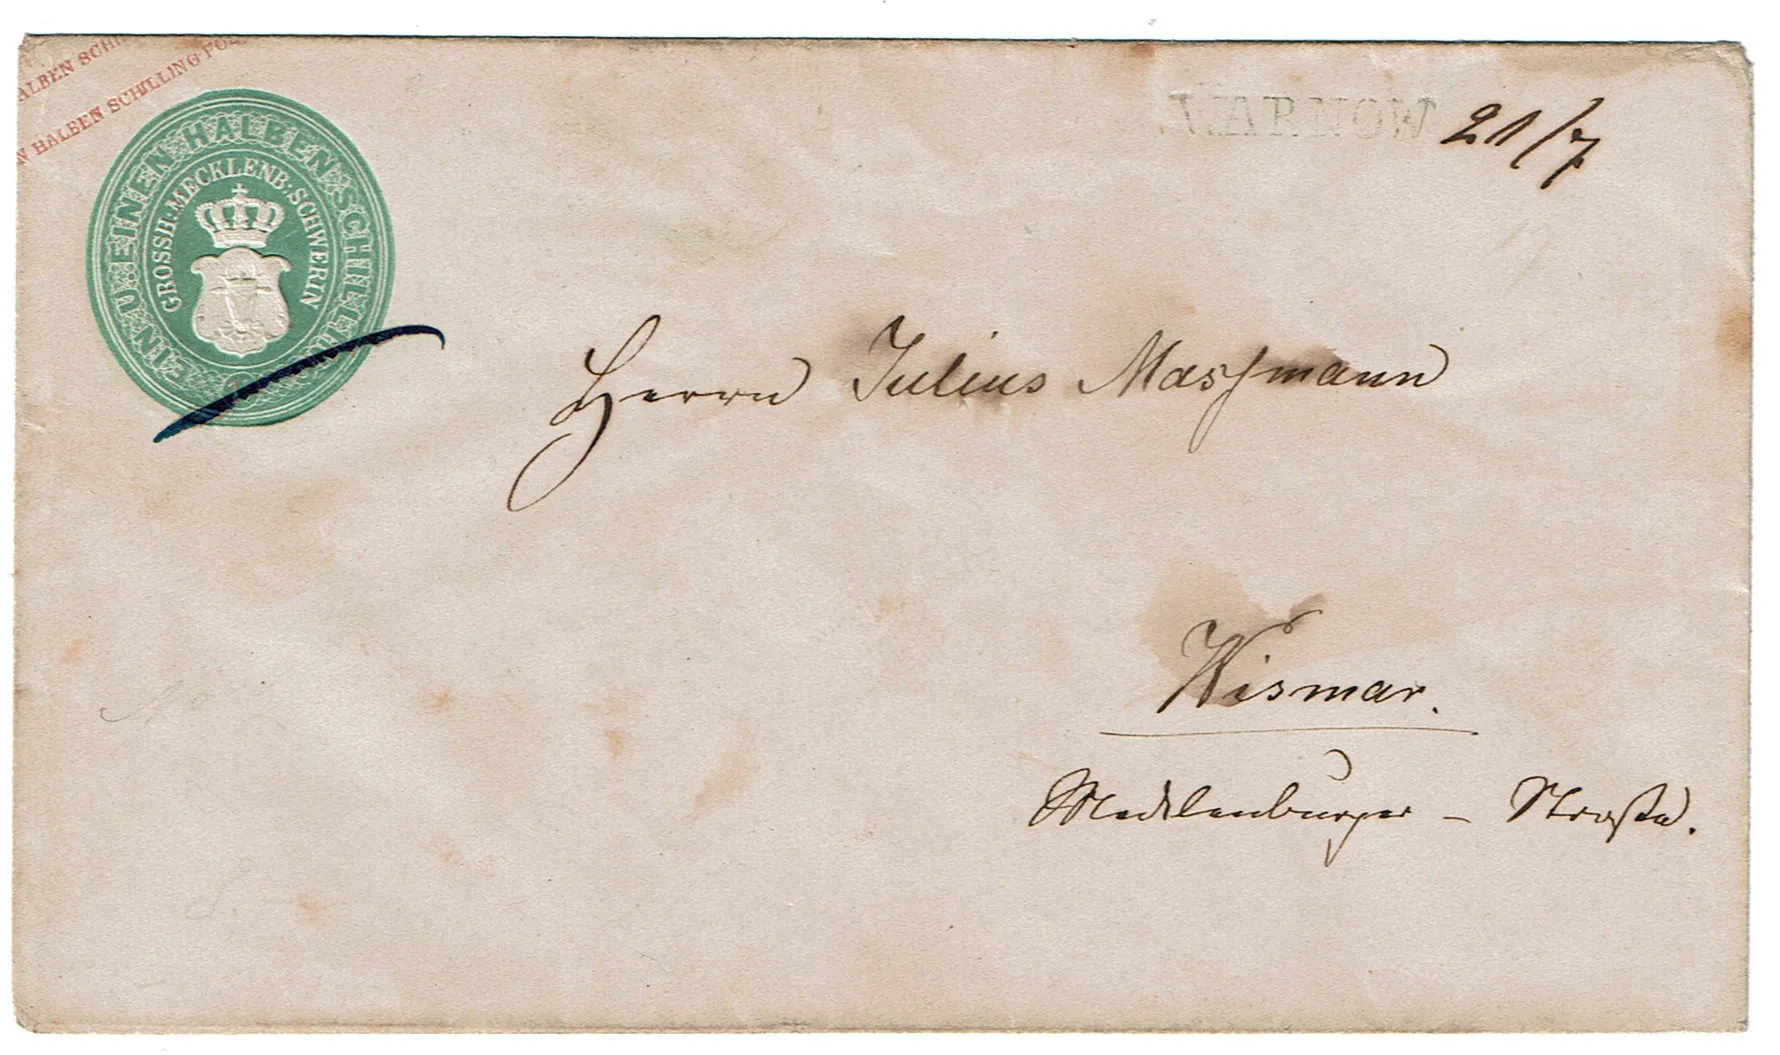 ALBEN SCHI
N HALBEN SCHILLING POS
EIN U. EINEN HALBEN SCHILLING
GROSSH. MECKLENB: SCHWERIN
WARNOW 21/7
Herrn Julius Massmann
Wismar.
Mecklenburger - Straße.